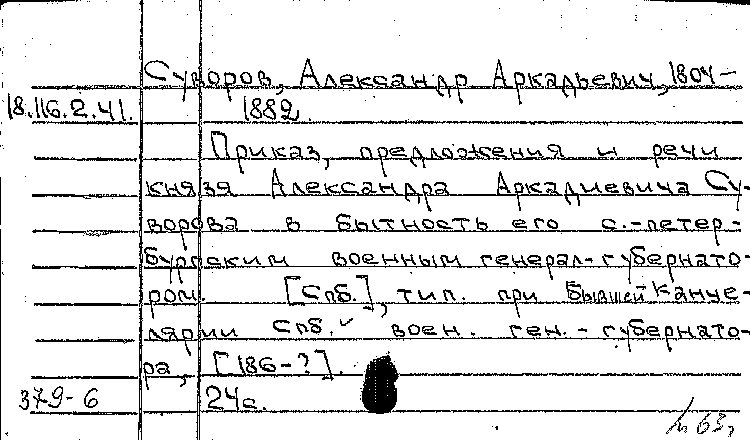 Суворов, Александр Аркадьевич, 1804-
18.116.2.41. 1882.
Приказ, предложения и речи
князя Александра Аркадиевича Су-
ворова в бытность его с.-петер-
бургским военным генерал-губернато-
ром. [Спб.], тип. при бывшей канце-
лярии Спб. воен. ген.-губернато-
ра, [186-?].
379-6 24с.
м 63г